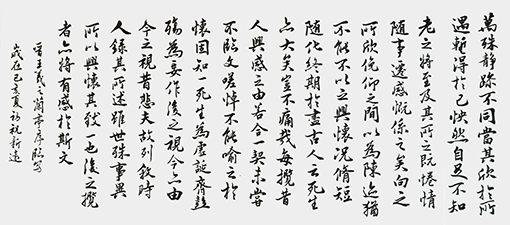 萬殊靜躁不同當其欣於所
遇輒得於己怏然自足不知
老之將至及其所之既惓情
隨事遷感慨係之矣向之
所欣俛仰之間以為陳迹猶
不能不以之興懷況脩短
隨化終期於盡古人云死生
亦大矣豈不痛哉每攬昔
人興感之由若合一契未嘗
不臨文嗟悼不能喻之於
懷固知一死生為虛誕齊彭
殤為妄作後之視今亦由
今之視昔悲夫故列敘時
人錄其所述雖世殊事異
所以興懷其致一也後之攬
者亦將有感於斯文
晉王羲之蘭亭序臨寫
歲在己亥夏祝新遠